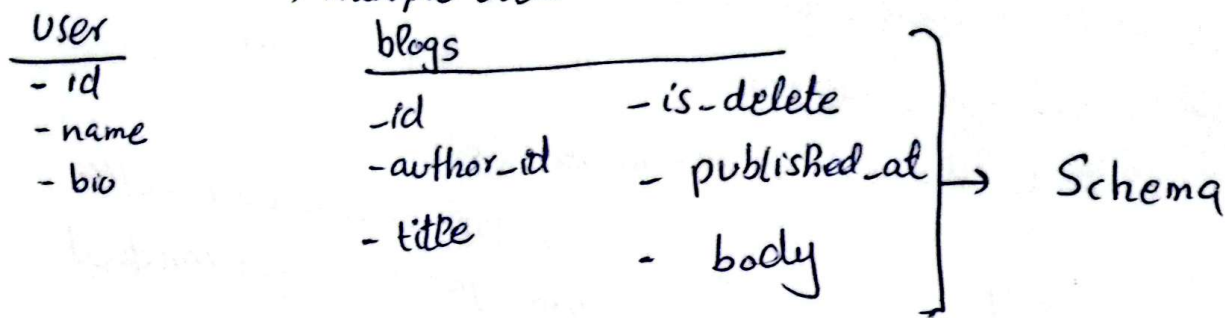 User
- id
- name
- bio
blogs
- id
- author_id
- title
- is_delete
- published_at
- body
→ Schema